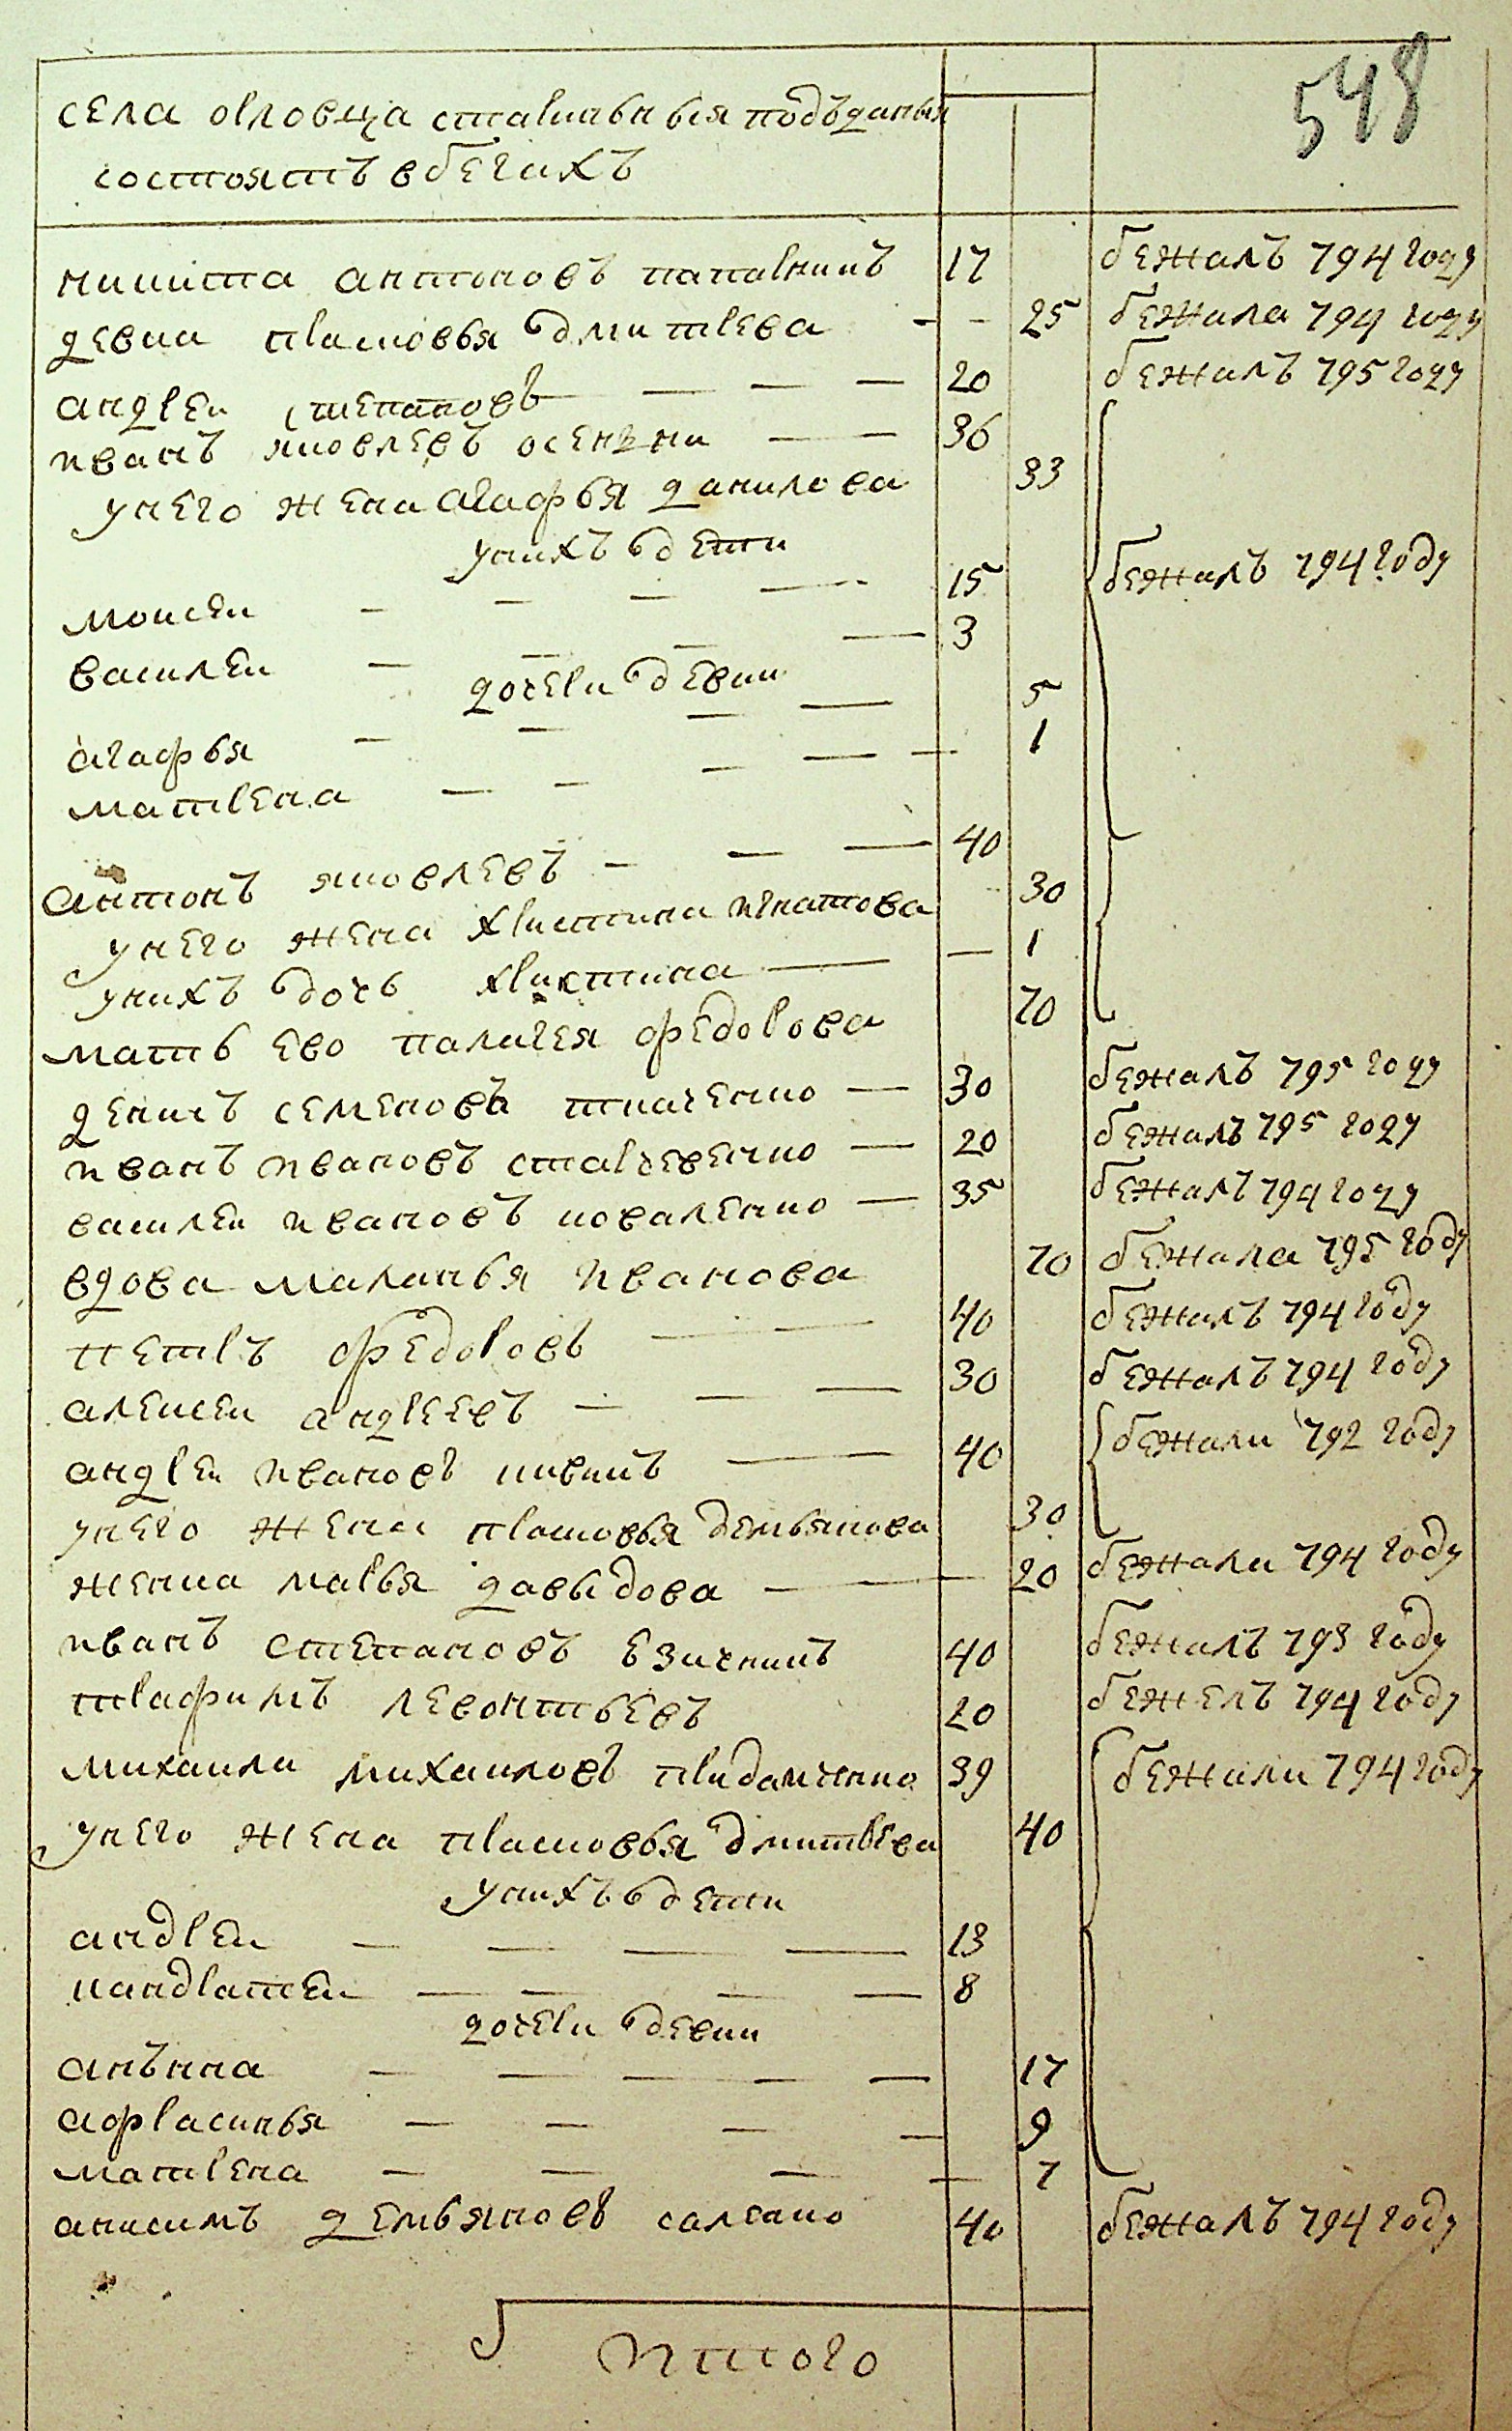 548
села орловца старинныя подъданыя
состоятъ в бегахъ
никита антоновъ 17 бежалъ 794 году
девка прасковья дмитрева 25 бежала 794 году
андреи степановъ 20 бежалъ 795 году
иванъ яковлевъ 36
у него жена агафья данилова 33
у нихъ дети
моисеи 15 бежалъ 794 году
василеи 3
дочери девки
агафья 5
матрена 1
антонъ яковлевъ 40
у него жена христина игнатова 30
у нихъ дочь христина 1
мать ево палагея федорова 70
денисъ семеновъ ткаченко 30 бежалъ 795 году
иванъ ивановъ старченко 20 бежалъ 795 году
василеи ивановъ коваленко 35 бежалъ 794 году
вдова маланья иванова 70 бежала 795 году
петръ федоровъ 40 бежалъ 794 году
алексеи андреевъ 30 бежалъ 794 году
андреи ивановъ 40 бежали 792 году
у него жена прасковья демьянова 30
женка марья давыдова 20 бежала 794 году
иванъ степановъ 40 бежалъ 793 году
трафимъ леонтьевъ 20 бежелъ 794 году
михаила михаиловъ 39 бежали 794 году
у него жена прасковья дмитрева 40
у нихъ дети
андреи 13
кандратеи 8
дочери девки
анънна 17
афрасинья 9
матрена 7
анисимъ демьяновъ 40 бежалъ 794 году
итого